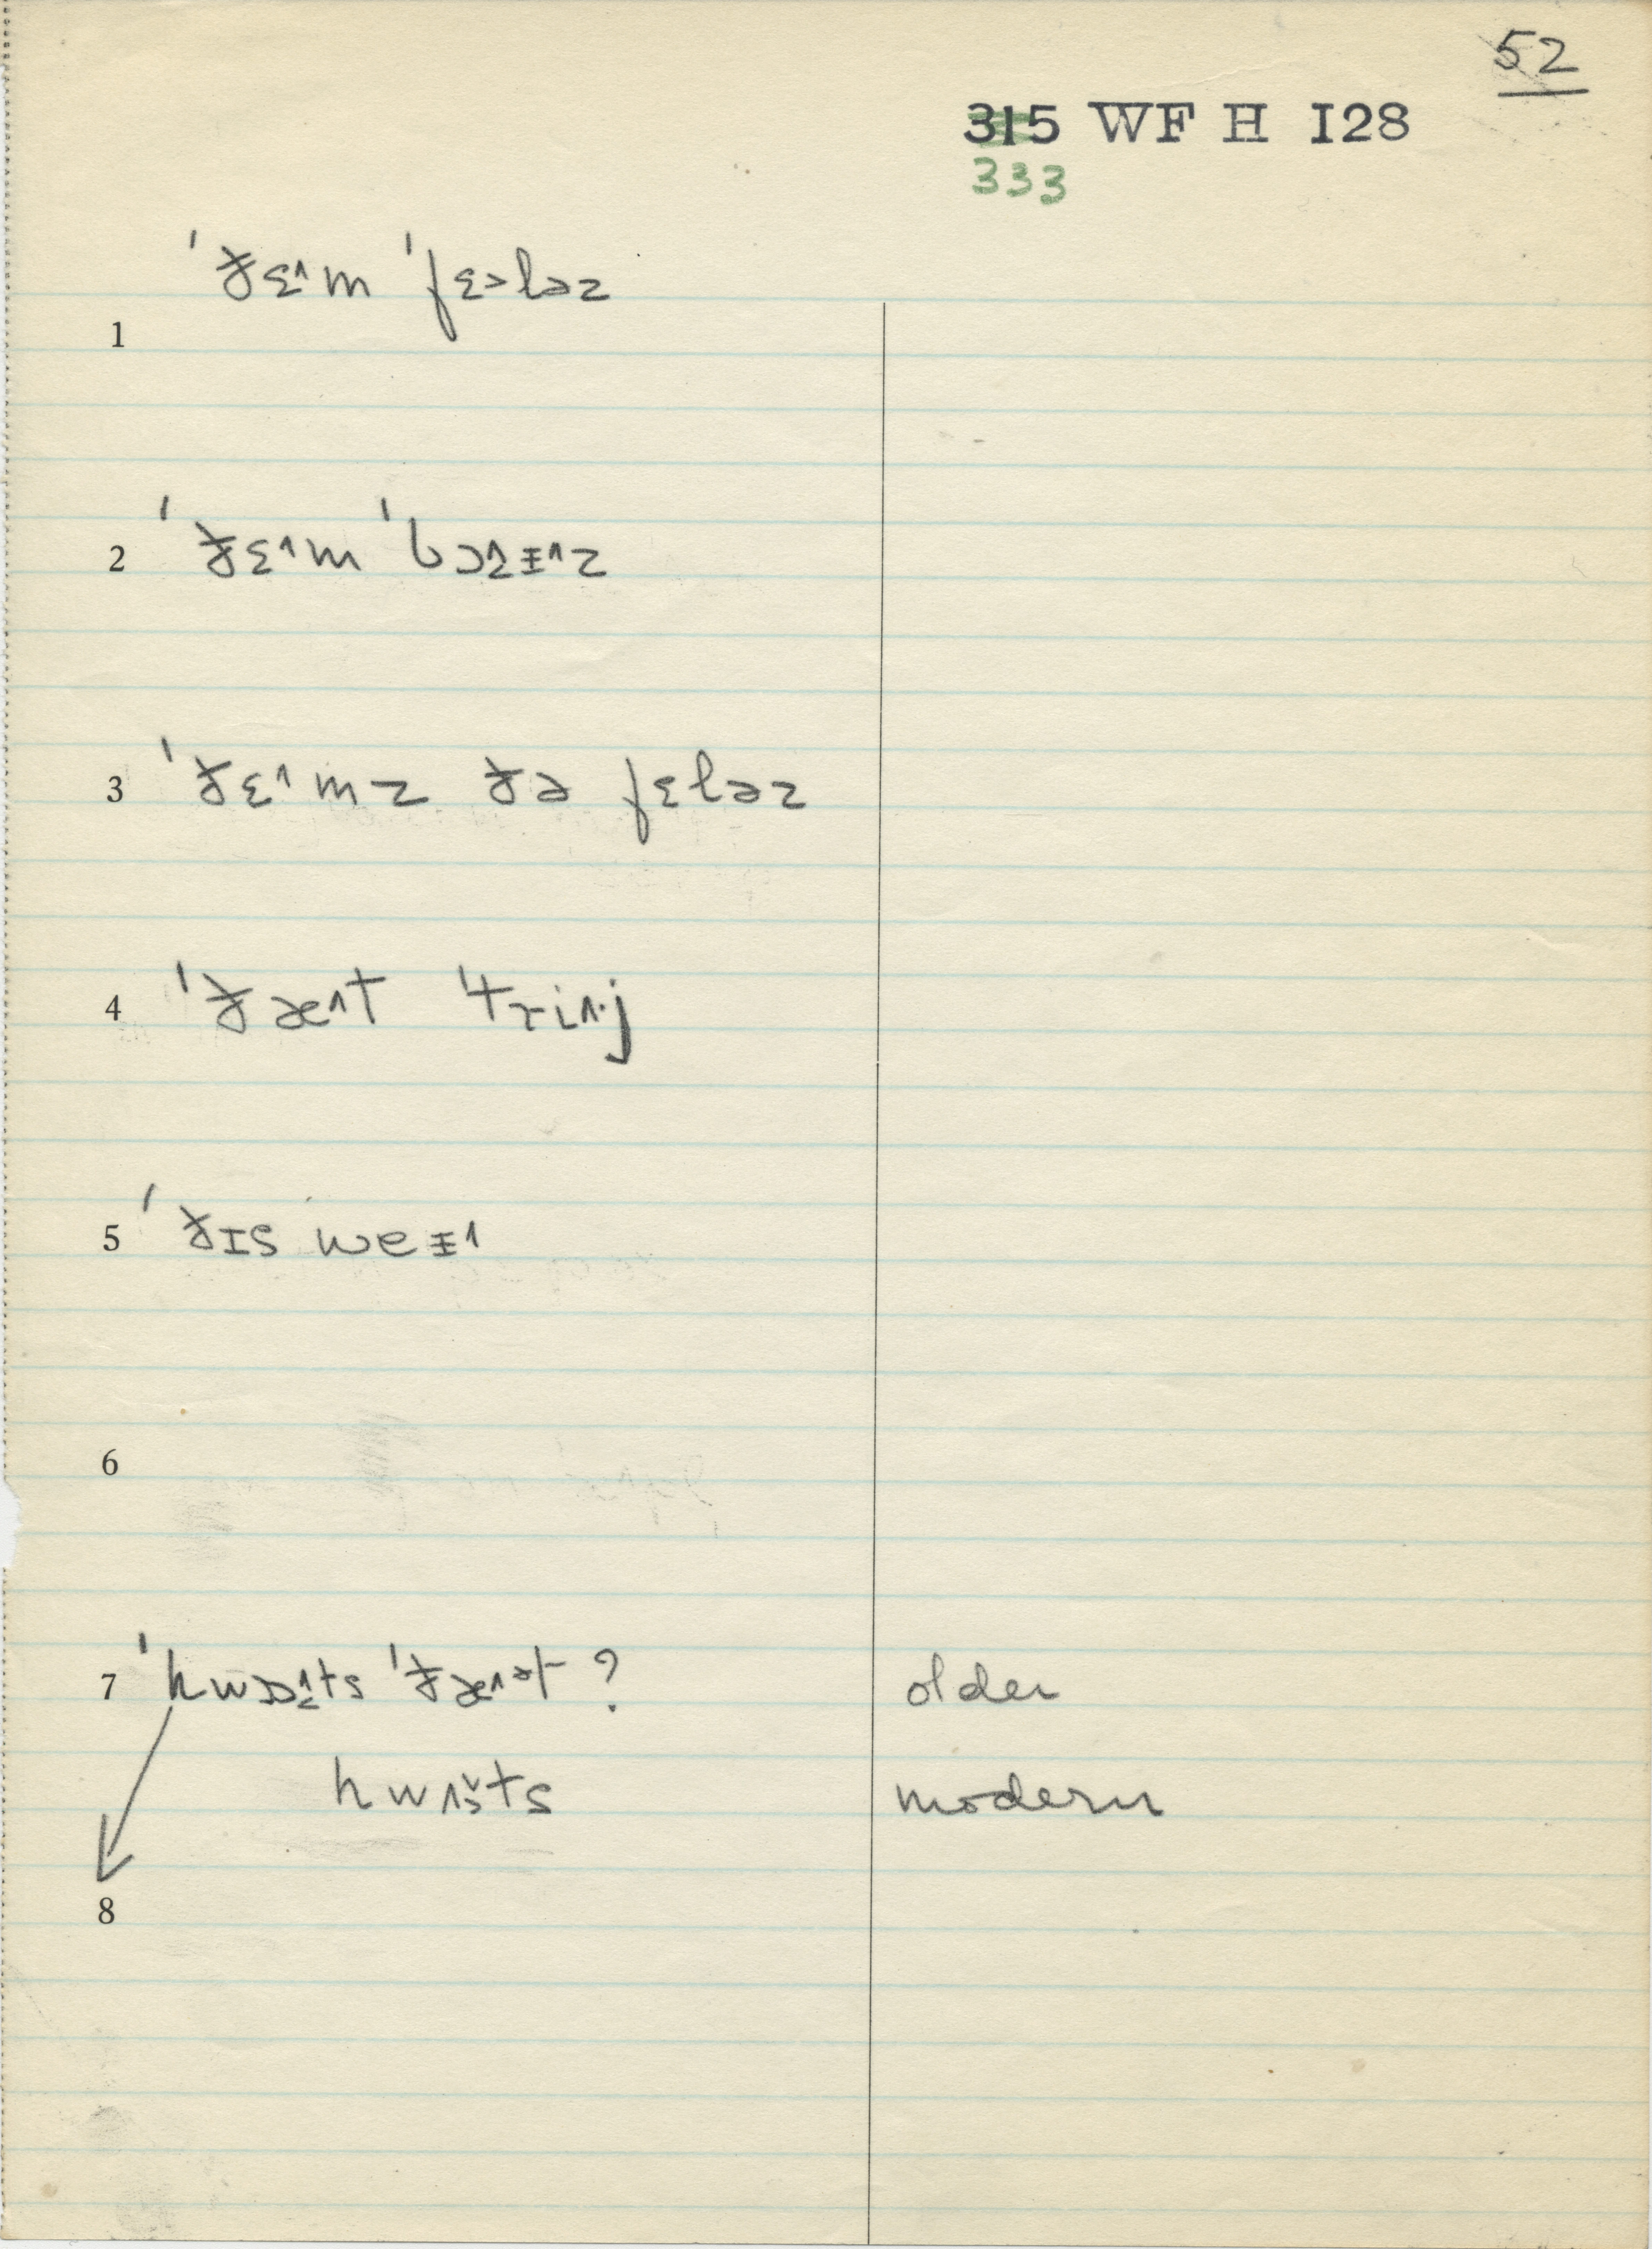 52
315 WF H I28
333
1 ˈðɛ˄m ˈfɛ˃ləz
2 ˈðɛ˄m ˈbɔ˄ɪ˄z
3 ˈðɛ˄mz ðə fɛləz
4 ˈðæ˄t
5 ˈðɪs weɪ˄
6
7 ˈhwɒ˄ts ˈðæ˄ət ? older
hwʌts modern
8